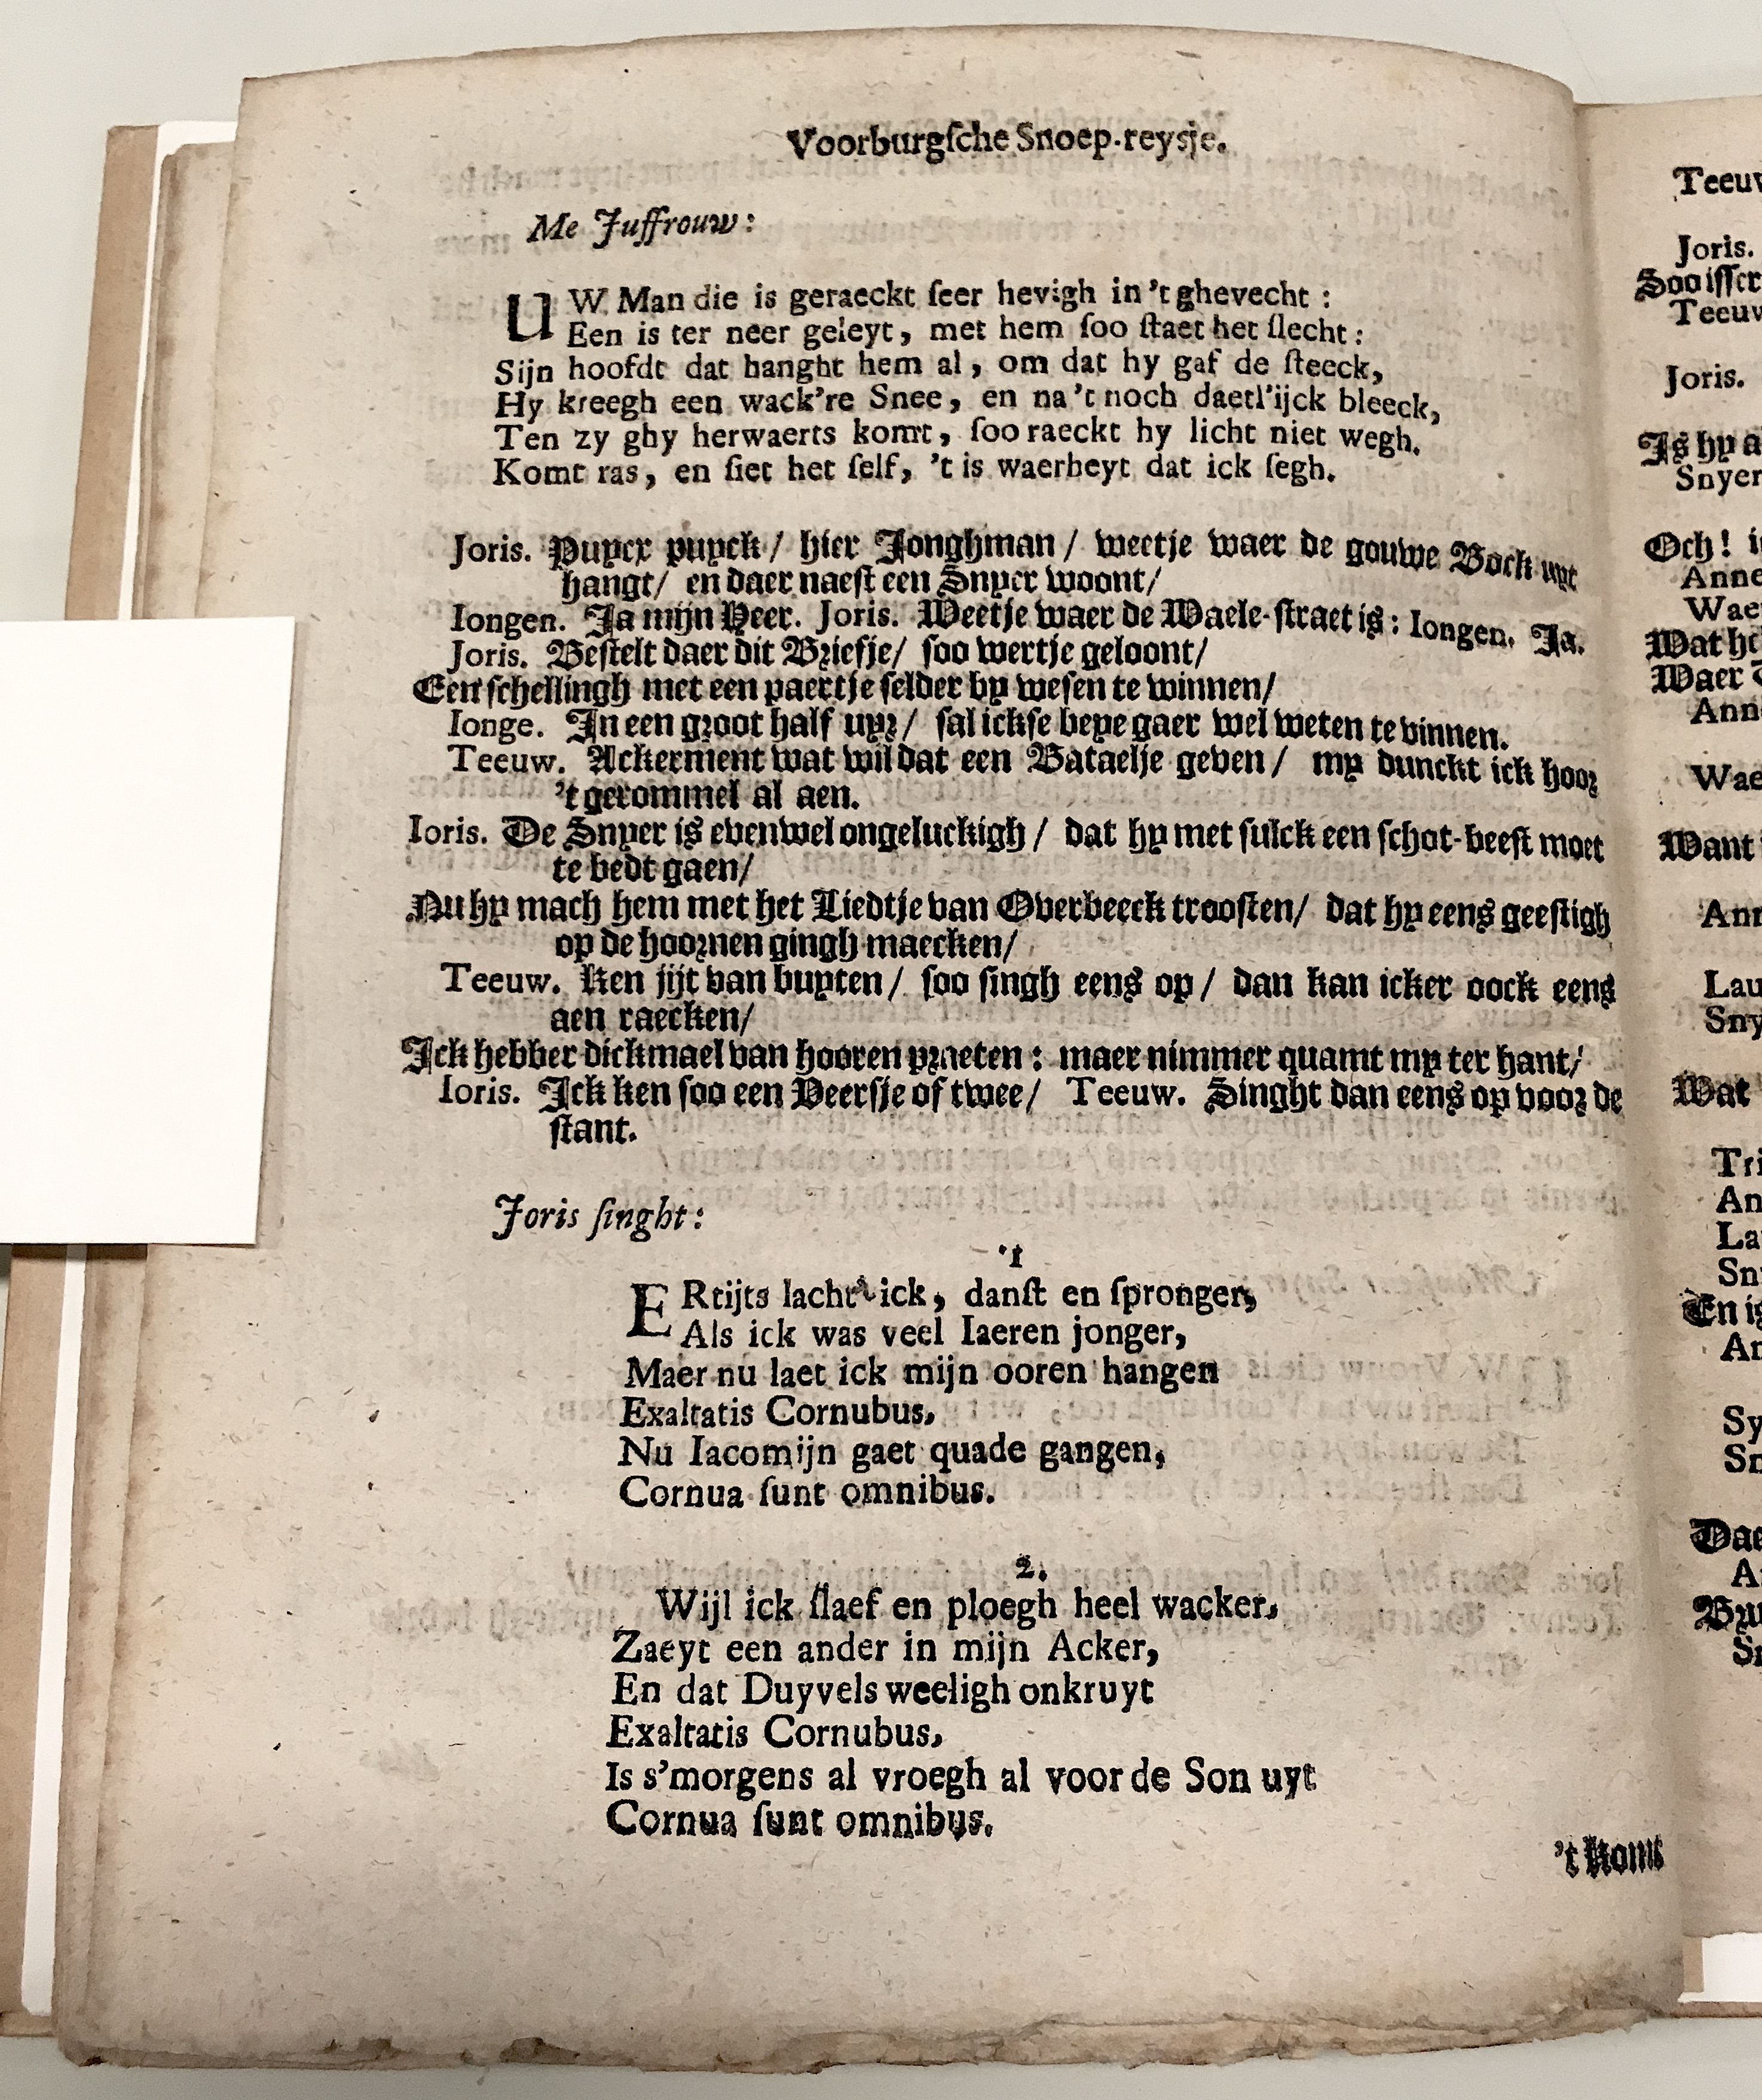 Voorburgſche Snoep-reysje.
Me Juffrouw:
UW Man die is geraeckt ſeer hevigh in 't ghevecht:
Een is ter neer geleyt, met hem ſoo ſtaet het ſlecht:
Sijn hoofdt dat hanght hem al, om dat hy gaf de ſteeck,
Hy kreegh een wack're Snee, en na 't noch daetl'ijck bleeck,
Ten zy ghy herwaerts komt, ſoo raeckt hy licht niet wegh.
Komt ras, en ſiet het ſelf, 't is waerheyt dat ick ſegh.
Joris. Puycx puyck/ hier Jonghman/ weetje waer de gouwe Bock uyt
hangt/ en daer naeſt een Snyer woont/
Iongen. Ja mijn Heer. Joris. Weetje waer de Waele-ſtraet is: Iongen. Ja.
Joris. Beſtelt daer dit Briefje/ ſoo wertje geloont/
Een ſchellingh met een paertje ſelder by weſen te winnen/
Ionge. In een groot half uyr/ ſal ickſe beye gaer wel weten te vinnen.
Teeuw. Ackerment wat wil dat een Bataelje geven/ my dunckt ick hoor
't gerommel al aen.
Ioris. De Snyer is evenwel ongeluckigh/ dat hy met ſulck een ſchot-beeſt moet
te bedt gaen/
Nu hy mach hem met het Liedtje van Overbeeck trooſten/ dat hy eens geeſtigh
op de hoornen gingh maecken/
Teeuw. Ken jijt van buyten/ ſoo ſingh eens op/ dan kan icker oock eens
aen raecken/
Ick hebber dickmael van hooren praeten: maer nimmer quamt my ter hant/
Ioris. Ick ken ſoo een Veersje of twee/ Teeuw. Singht dan eens op voor de
ſtant.
Joris ſinght:
'1
ERtijts lacht ick, danſt en ſpronger,
Als ick was veel Iaeren jonger,
Maer nu laet ick mijn ooren hangen
Exaltatis Cornubus,
Nu Iacomijn gaet quade gangen,
Cornua ſunt omnibus.
2.
Wijl ick ſlaef en ploegh heel wacker,
Zaeyt een ander in mijn Acker,
En dat Duyvels weeligh onkruyt
Exaltatis Cornubus,
Is s'morgens al vroegh al voor de Son uyt
Cornua ſunt omnibus.
't Komt
Joris.
Soo iſſer
Joris.
Is hy a
Och!
Waer
Want
Wat